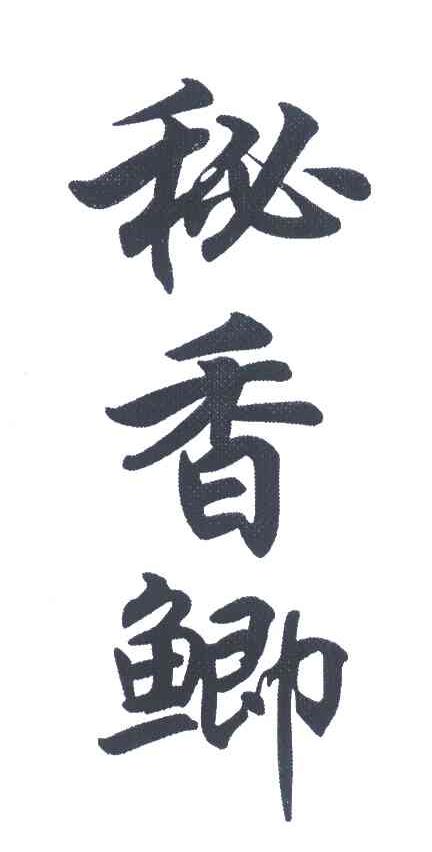 秘香鲫